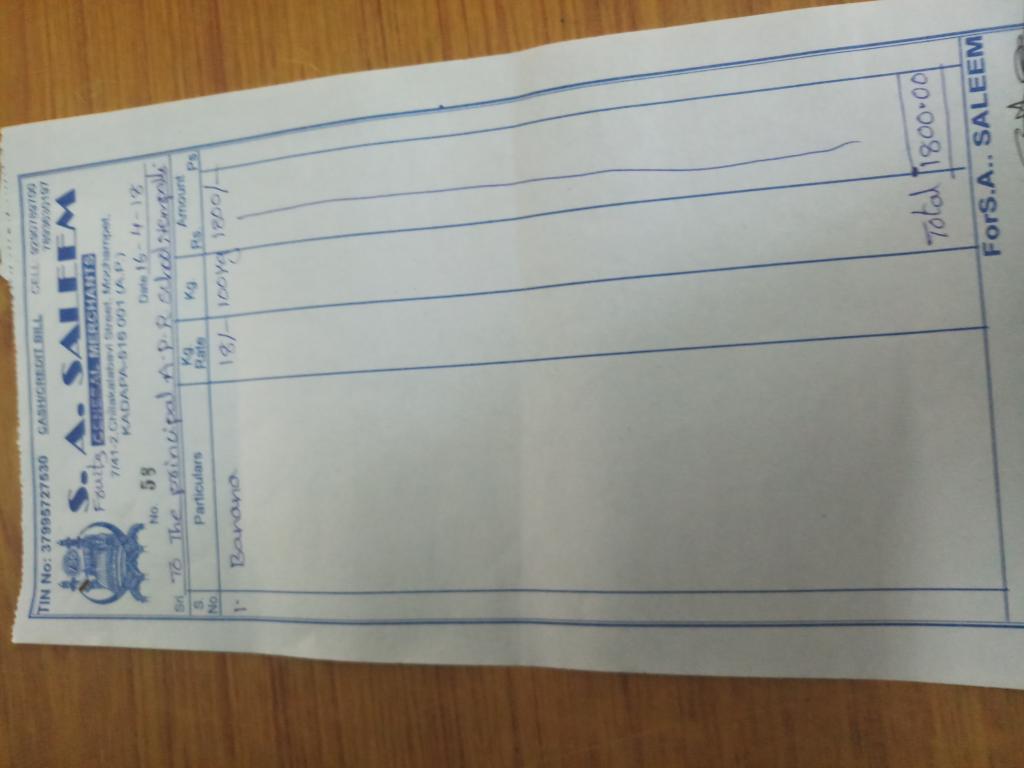 TIN No: 37995727530 CASH/CREDIT BILL CELL
S. A. SALEEM
Fruits GENERAL MERCHANTS
7/41-2, Chilakalabavi Street, Mochampet,
KADAPA-516 001 (A.P.)
No. 58 Date 16-4-18
Sri To The principal A.P.R School
S. No. Particulars Kg Rate Kg Amount Rs Ps
1- Banana 18/- 100kg 1800/-
Total 1800.00
For S.A.. SALEEM